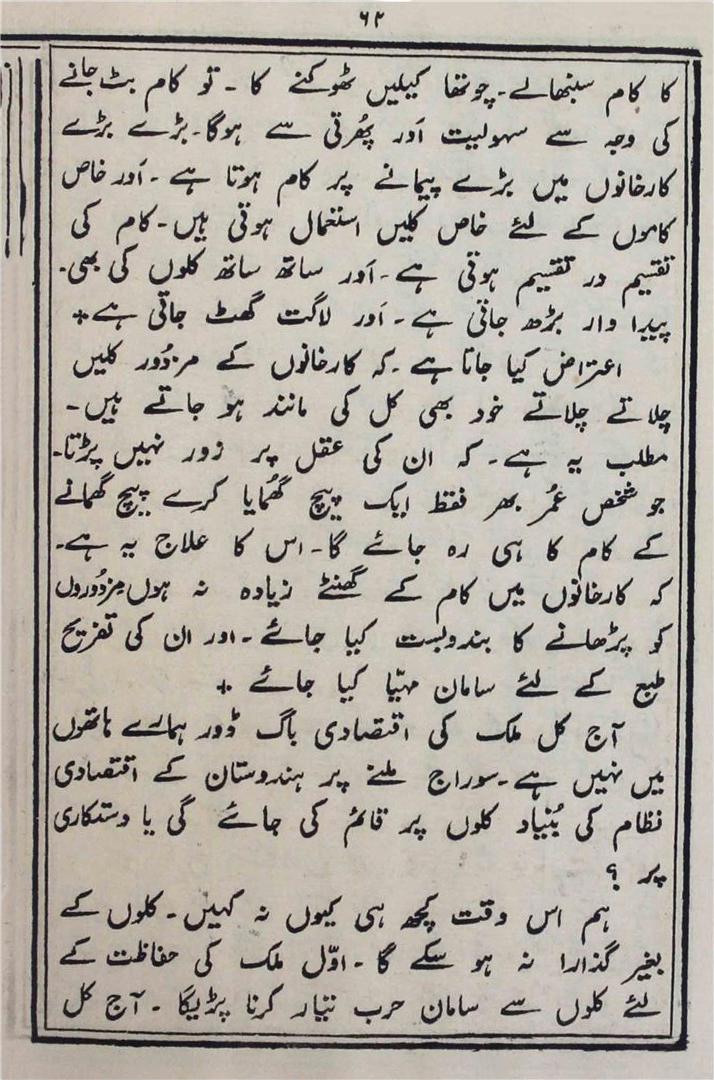 ۶۲
کا کام سنبھالے۔ چوتھا کیلیں ٹھوکنے کا ۔ تو کام بٹ جانے
کی وجہ سے سہولیت اَور پھُرتی سے ہوگا۔ بڑے بڑے
کارخانوں میں بڑے پیمانے پر کام ہوتا ہے ۔ اَور خاص
کاموں کے لئے خاص کلیں استعمال ہوتی ہیں۔ کام کی
تقسیم در تقسیم ہوتی ہے۔ اَور ساتھ ساتھ کلوں کی بھی۔
پیدا وار بڑھ جاتی ہے ۔ اَور لاگت گھٹ جاتی ہے +
اعتراض کیا جاتا ہے ۔ کہ کارخانوں کے مزدُور کلیں
چلاتے چلاتے خود بھی کل کی مانند ہو جاتے ہیں۔
مطلب یہ ہے ۔ کہ ان کی عقل پر زور نہیں پڑتا۔
جو شخص عمُر بھر فقط ایک پیچ گھُمایا کرے پیچ گھمانے
کے کام کا ہی رہ جائے گا۔ اس کا علاج یہ ہے۔
کہ کارخانوں میں کام کے گھنٹے زیادہ نہ ہوں مزدُوروں
کو پڑھانے کا بندوبست کیا جائے ۔ اور ان کی تفریح
طبع کے لئے سامان مہیّا کیا جائے +
آج کل ملک کی اقتصادی باگ ڈور ہمارے ہاتھوں
میں نہیں ہے۔ سوراج ملنے پر ہندوستان کے اقتصادی
نظام کی بُنیاد کلوں پر قائم کی جائے گی یا دستکاری
پر ؟
ہم اس وقت کچھ ہی کیوں نہ کہیں۔ کلوں کے
بغیر گذارا نہ ہو سکے گا ۔ اوّل ملک کی حفاظت کے
لئے کلوں سے سامان حرب تیّار کرنا پڑیگا ۔ آج کل